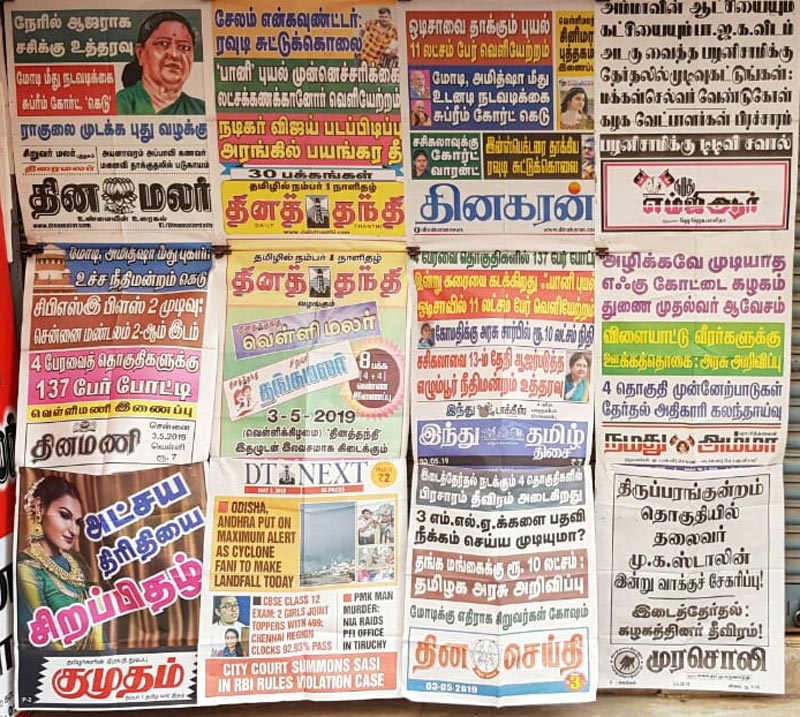 நேரில் ஆஜராக
சசிக்கு உத்தரவு
மோடி மீது நடவடிக்கை
சுப்ரீம் கோர்ட் 'கெடு'
ராகுலை முடக்க புது வழக்கு
சிறுவர் மலர்
அயனாவரம் அப்பாவி கணவர்
மனைவி தாக்குதலில் படுகாயம்
தின மலர்
உண்மையின் உரைகல்
சேலம் என்கவுண்டர்:
ரவுடி சுட்டுக்கொலை
'பானி' புயல் முன்னெச்சரிக்கை
லட்சக்கணக்கானோர் வெளியேற்றம்
நடிகர் விஜய் படப்பிடிப்பு
அரங்கில் பயங்கர தீ
30 பக்கங்கள்
தமிழில் நம்பர் 1 நாளிதழ்
தினத் தந்தி
DAILY THANTHI
ஒடிசாவை தாக்கும் புயல்
11 லட்சம் பேர் வெளியேற்றம்
வெள்ளிமலர்
சினிமா
புத்தகம்
இணைப்பு
மோடி, அமித்ஷா மீது
உடனடி நடவடிக்கை
சுப்ரீம் கோர்ட் கெடு
சசிகலாவுக்கு
கோர்ட்
வாரண்ட்
இன்ஸ்பெக்டரை தாக்கிய
ரவுடி சுட்டுக்கொலை
தினகரன்
அம்மாவின் ஆட்சியையும்
கட்சியையும் பா.ஜ.க.விடம்
அடகு வைத்த பழனிசாமிக்கு
தேர்தலில்முடிவுகட்டுங்கள்:
மக்கள்செல்வர் வேண்டுகோள்
கழக வேட்பாளர்கள் பிரச்சாரம்
பழனிசாமிக்கு டிடிவி சவால்
எம்ஜிஆர்
மோடி, அமித்ஷா மீது புகார்:
உச்ச நீதிமன்றம் கெடு
சிபிஎஸ்இ பிளஸ் 2 முடிவு:
சென்னை மண்டலம் 2-ஆம் இடம்
4 பேரவைத் தொகுதிகளுக்கு
137 பேர் போட்டி
வெள்ளிமணி இணைப்பு
தினமணி
சென்னை
3.5.2019
வெள்ளி
ரூ. 7
தமிழில் நம்பர் 1 நாளிதழ்
தினத் தந்தி
வழங்கும்
வெள்ளி மலர்
சிறுவர்
தங்கமலர்
8 பக்க
(4+4)
வண்ண
இணைப்பு
3-5-2019
(வெள்ளிக்கிழமை) 'தினத்தந்தி'
இதழுடன் இலவசமாகக் கிடைக்கும்
4 பேரவை தொகுதிகளில் 137 பேர் போட்டி
இன்று கரையை கடக்கிறது ஃபானி புயல்
ஒடிசாவில் 11 லட்சம் பேர் வெளியேற்றம்
கோமதிக்கு அரசு சார்பில் ரூ. 10 லட்சம் நிதி
சசிகலாவை 13-ம் தேதி ஆஜர்படுத்த
எழும்பூர் நீதிமன்றம் உத்தரவு
இந்து டாக்கீஸ்
இந்து தமிழ்
திசை
03.05.19
அழிக்கவே முடியாத
எஃகு கோட்டை கழகம்
துணை முதல்வர் ஆவேசம்
விளையாட்டு வீரர்களுக்கு
ஊக்கத்தொகை: அரசு அறிவிப்பு
4 தொகுதி முன்னேற்பாடுகள்
தேர்தல் அதிகாரி கலந்தாய்வு
நமது அம்மா
அட்சய
திரிதியை
சிறப்பிதழ்
குமுதம்
DT NEXT
₹2
MAY 3, 2019
ODISHA,
ANDHRA PUT ON
MAXIMUM ALERT
AS CYCLONE
FANI TO MAKE
LANDFALL TODAY
CBSE CLASS 12
EXAM: 2 GIRLS JOINT
TOPPERS WITH 499;
CHENNAI REGION
CLOCKS 92.93% PASS
PMK MAN
MURDER:
NIA RAIDS
PFI OFFICE
IN TIRUCHY
CITY COURT SUMMONS SASI
IN RBI RULES VIOLATION CASE
இடைத்தேர்தல் நடக்கும் 4 தொகுதிகளில்
பிரசாரம் தீவிரம் அடைகிறது
3 எம்.எல்.ஏ.க்களை பதவி
நீக்கம் செய்ய முடியுமா?
தங்க மங்கைக்கு ரூ. 10 லட்சம்:
தமிழக அரசு அறிவிப்பு
மோடிக்கு எதிராக சிறுவர்கள் கோஷம்
தின செய்தி
03-05-2019
₹3
திருப்பரங்குன்றம்
தொகுதியில்
தலைவர்
மு.க.ஸ்டாலின்
இன்று வாக்குச் சேகரிப்பு!
இடைத்தேர்தல்:
கழகத்தினர் தீவிரம்!
முரசொலி